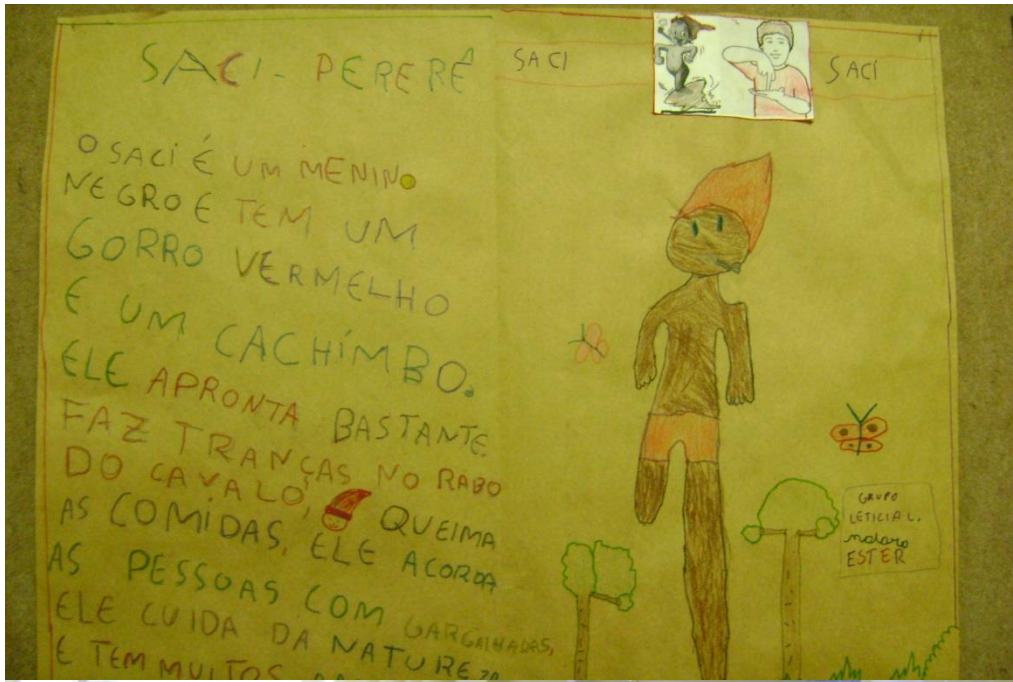 SACI-PERERÊ
O SACI É UM MENINO
NEGRO E TEM UM
GORRO VERMELHO
E UM CACHIMBO.
ELE APRONTA BASTANTE
FAZ TRANÇAS NO RABO
DO CAVALO, QUEIMA
AS COMIDAS, ELE ACORDA
AS PESSOAS COM GARGALHADAS,
ELE CUIDA DA NATUREZA
E TEM MUITOS
SACI
SACI
GRUPO
LETICIA L.
ESTER